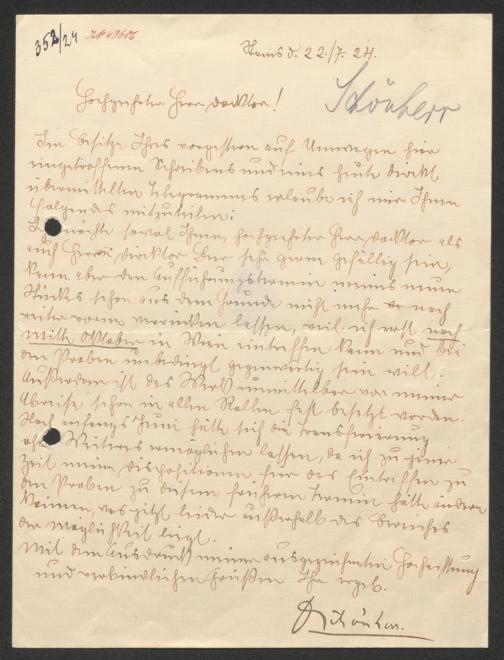 353/24
Stams d. 22./7. 24.
Schönherr
Hochgeehrter Herr Docktor!
Im Besitze Ihres vorgestern auf Umwegen hier
eingetroffenen Schreibens und eines heute direkt
übermittelten Telegrammes erlaube ich mir Ihnen
folgendes mitzuteilen:
möchte sowol Ihnen, hochgeehrter Herr Docktor als
auch Herrn Direktor Beer sehr gerne gefällig sein,
kann aber den Aufführungstermin meines neuen
Stücks schon aus dem Grunde nicht mehr noch
weiter vorne verrücken lassen, weil ich erst nach
Mitte Oktober in Wien eintreffen kann und bei
den Proben unbedingt gegenwärtig sein will.
Außerdem ist das Werk unmittelbar vor meiner
Abreise schon in allen Rollen fest besetzt worden.
Noch anfangs Juni hätte sich die Transferierung
ohne Weiteres ermöglichen lassen, da ich zu jener
Zeit meine Dispositionen für das Eintreffen zu
den Proben zu diesem früheren Termin hätte ändern
können, was jetzt leider außerhalb des Bereiches
der Möglichkeit liegt.
Mit dem Ausdruck meiner ausgezeichneten Hochachtung
und verbindlichen Grüßen Ihr ergeb.
Schönherr.